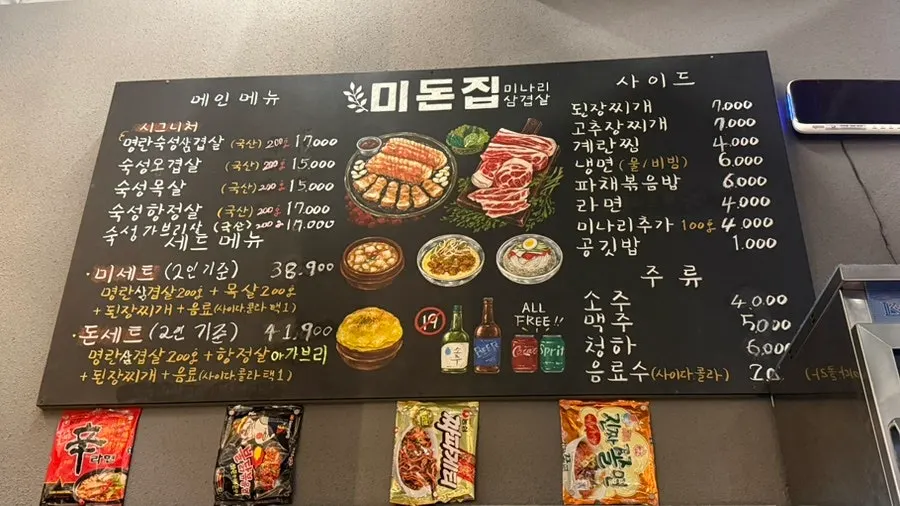 메인 메뉴
시그니처
명란숙성삼겹살 (국산) 200g 17.000
숙성오겹살 (국산) 200g 15.000
숙성목살 (국산) 200g 15.000
숙성항정살 (국산) 200g 17.000
숙성가브리살 (국산) 200g 17.000
세트 메뉴
· 미세트 (2인 기준) 38.900
명란삼겹살 200g + 목살 200g
+ 된장찌개 + 음료 (사이다.콜라 택1)
· 돈세트 (2인 기준) 41.900
명란삼겹살 200g + 항정살아가브리
+ 된장찌개 + 음료 (사이다.콜라 택1)
미돈집 미나리
삼겹살
19
ALL
FREE!!
소주
사이드
된장찌개 7.000
고추장찌개 7.000
계란찜 4.000
냉면 (물/비빔) 6.000
파채볶음밥 6.000
라면 4.000
미나리추가 100g 4.000
공깃밥 1.000
주류
소주 4000
맥주 5000
청하 6000
음료수 (사이다.콜라)
辛
라면
짜파게티